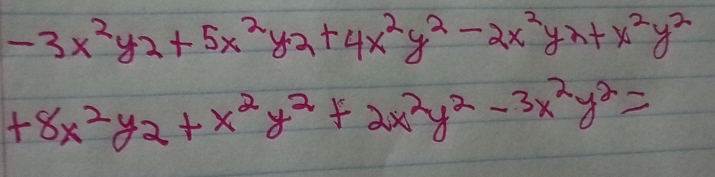 -3x²y2+5x²y2+4x²y²-2x²y2+x²y²
+8x²y2+x²y²+2x²y²-3x²y²=